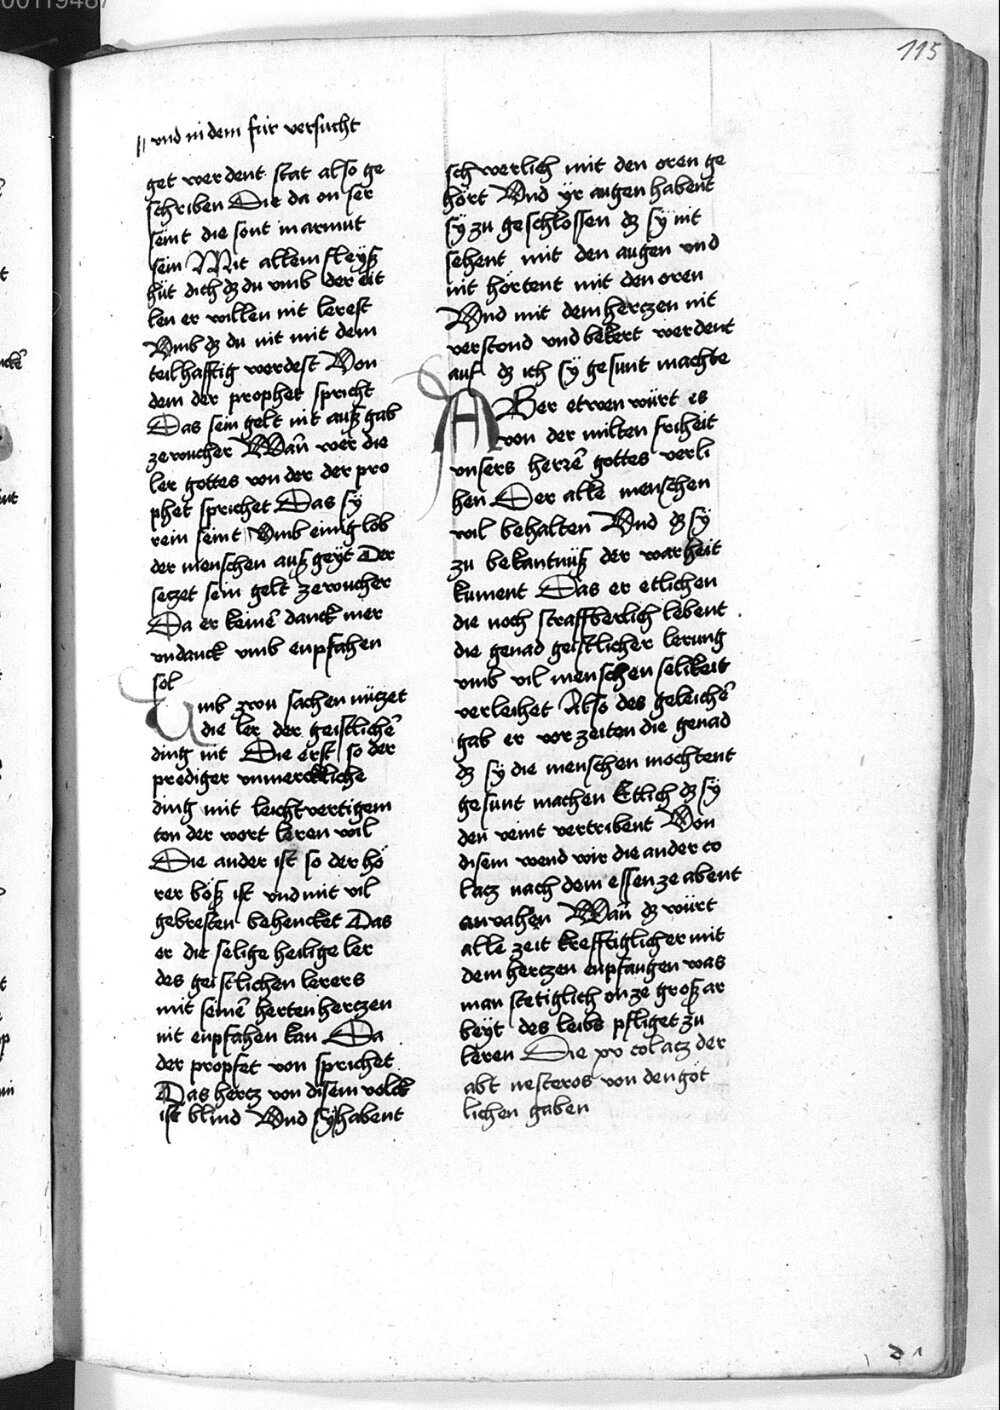 115
|| vnd in dem für versucht
get werdent stat also ge
schriben Die da on ser
seint die sönt in armut
sein Mit allem fleyß
hüt dich dz du vmb der eit
len er willen nit lerest
Vmb dz du nit mit dem
teilhafftig werdest Von
dem der prophet spricht
Das sein gelt nit auß gab
ze wucher Wañ wer die
ler gottes von der der pro
phet sprichet Das sy
rein seint Vmb einig lob
der menschen auß geyt Der
seczet sein gelt ze wucher
Da er keinē danck mer
vndanck vmb enpfahen
sol
Umb zwu sachen nüczet
die ler der geistlichē
ding nit Die erst so der
prediger vnmerckliche
ding mit leichtvertigem
ton der wort leren wil
Die ander ist so der hö
rer böß ist vnd mit vil
gebresten behencket Das
er die selige heilige ler
des geistlichen lerers
mit seinē herten herczen
nit enpfahen kan Da
der propfet von sprichet
Das hercz von disem volck
ist blind Vnd sy habent
schwerlich mit den oren ge
hört Vnd yr augen habent
sy zu geschlossen dz sy nit
sehent mit den augen vnd
nit hörtent mit den oren
Vnd mit dem herczen nit
verstond vnd bekert werdent
auf dz ich sy gesunt machte
ABer etwen würt es
von der milten friheit
vnsers herrē gottes verli
hen Der alle menschen
wil behalten Vnd dz sy
zu bekantnüß der warheit
kument Das er etlichen
die noch straffberlich lebent
die genad geistlicher lerung
vmb vil menschen selikeit
verleihet Also des geleichē
gab er vor zeiten die genad
dz sy die menschen mochtent
gesunt machen Etlich dz sy
den veint vertribent Von
disem wend wir die ander co
lacz nach dem essen ze abent
an vahen Wañ dz würt
alle zeit krefftiglicher mit
dem herczen enpfangen was
man stetiglich on ze groß ar
beyt des leibs pfliget zu
leren Die xv colacz der
abt nesteros von den göt
lichen gaben